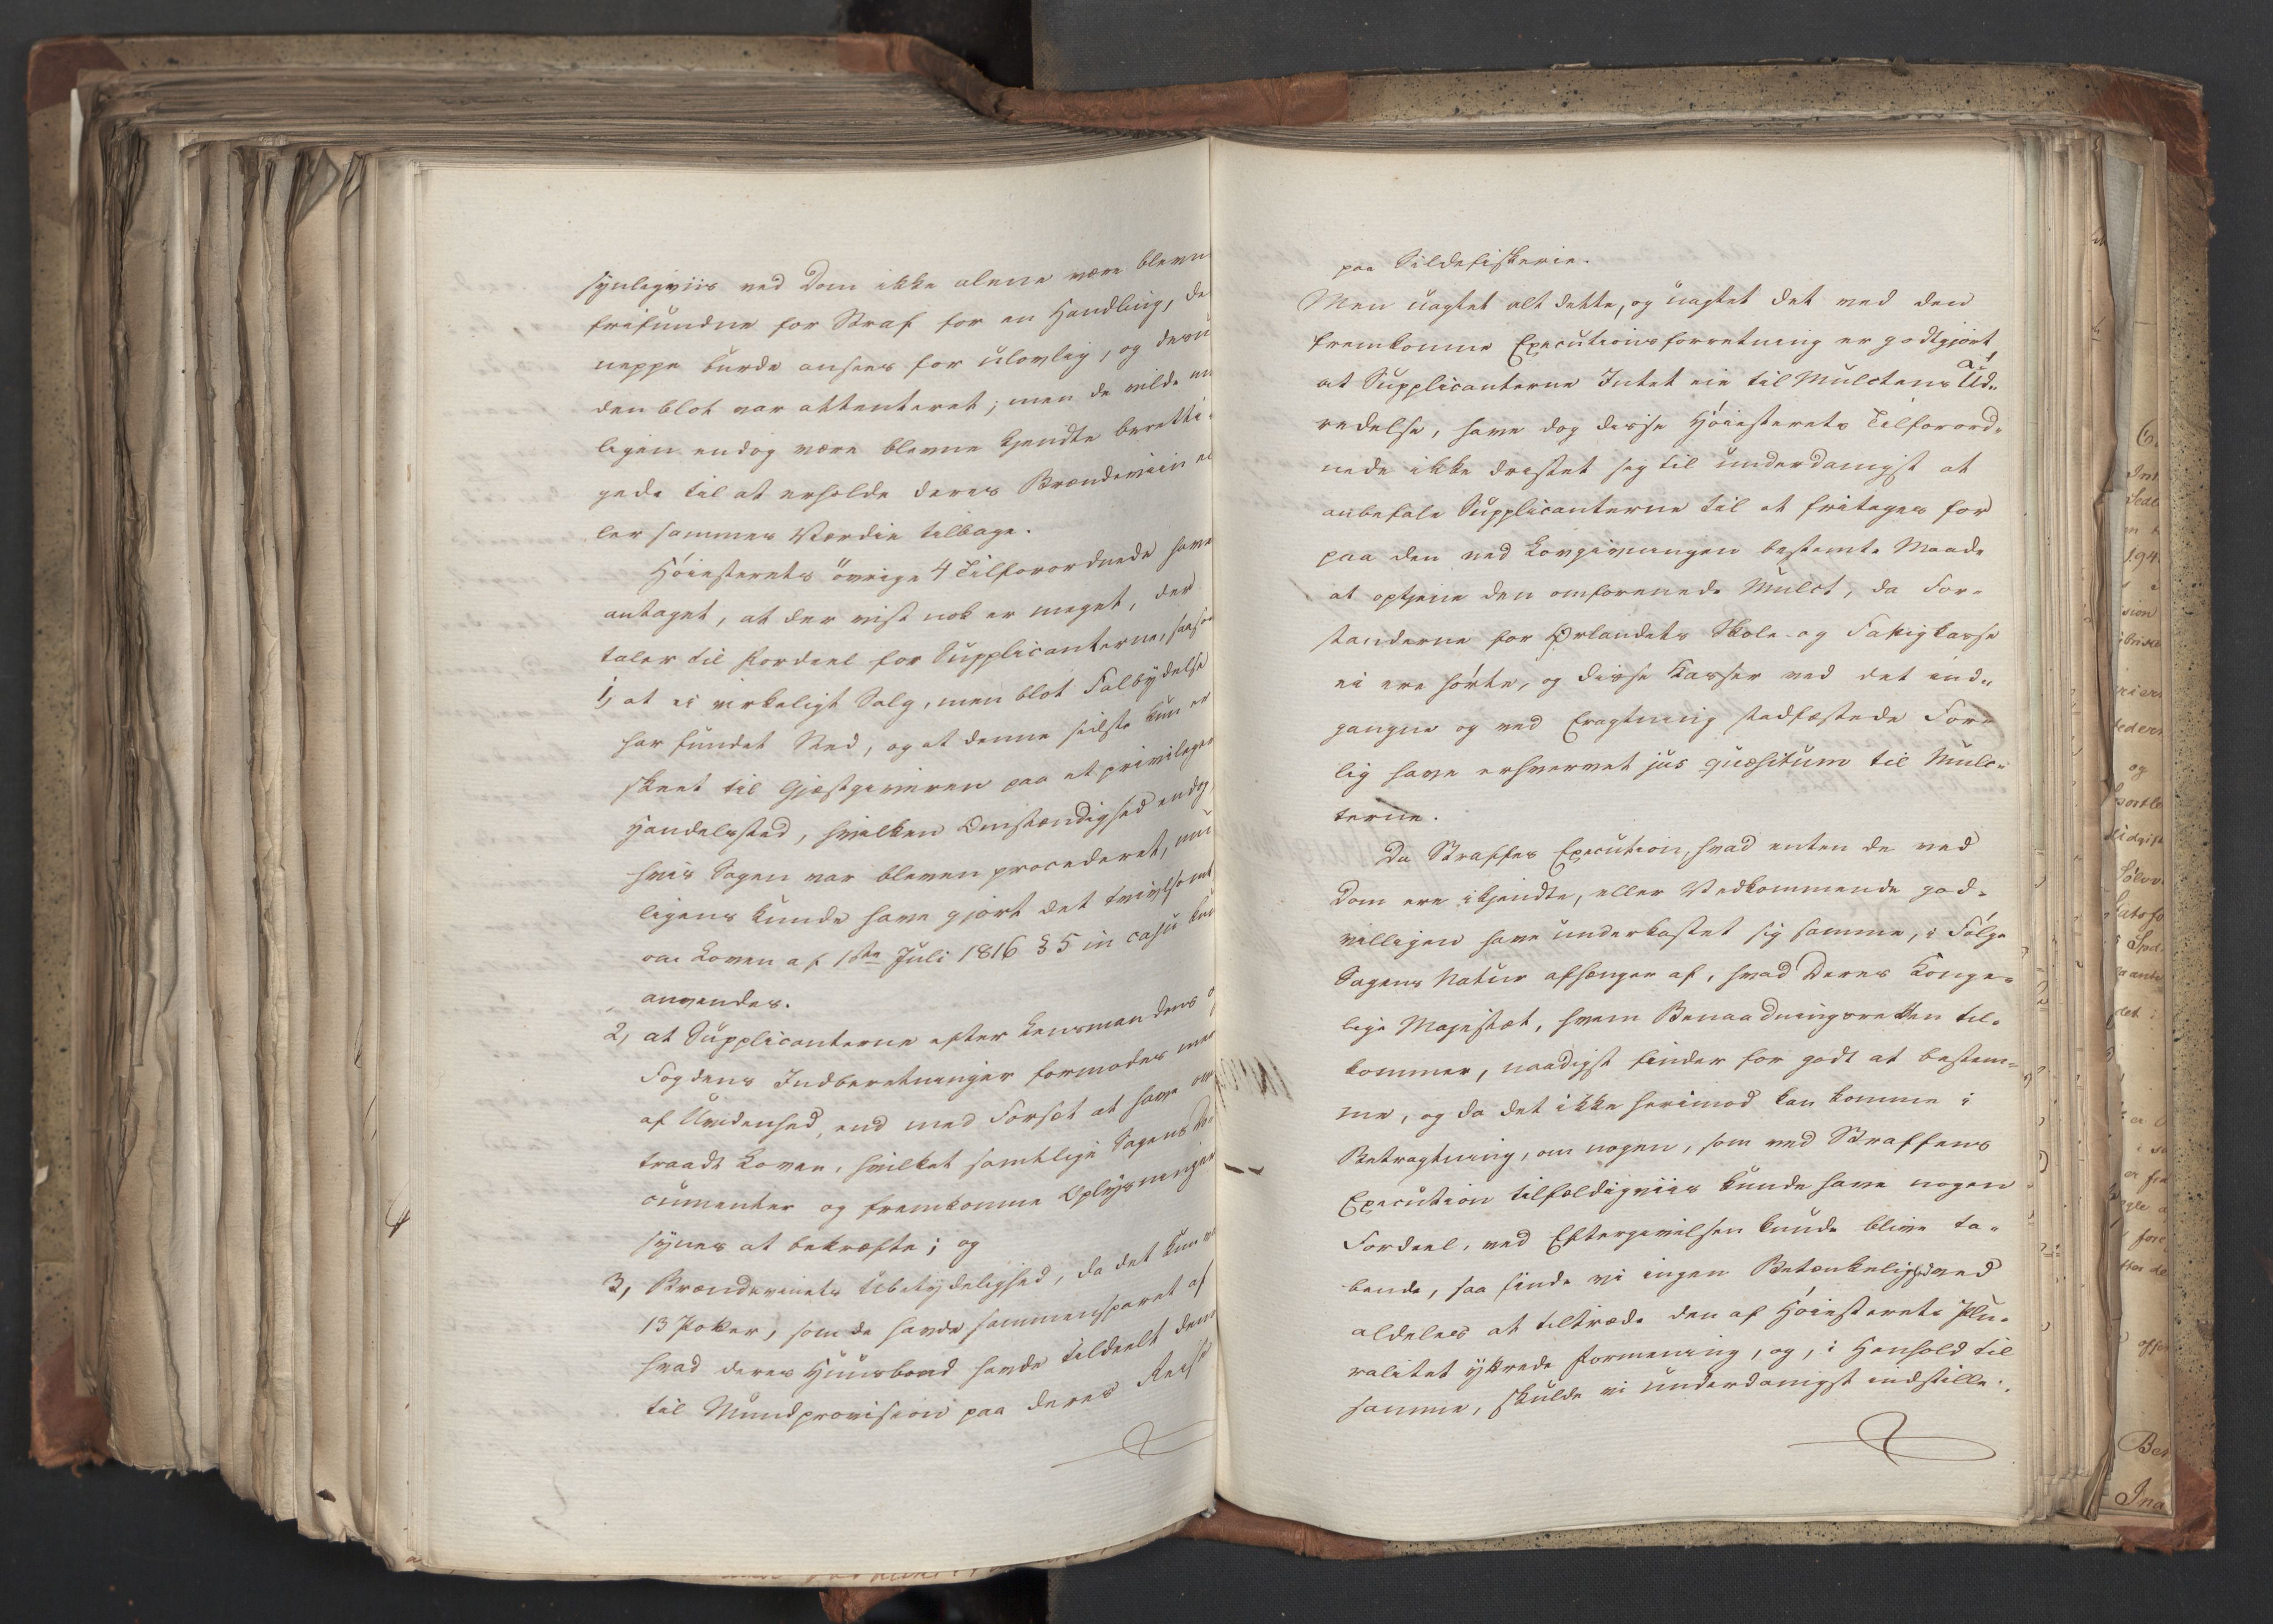 synligviis ved Dom ikke alene være blevne
frifundne for Straf for en Handling, der
neppe burde ansees for ulovlig, og desu
den blot var attenteret; men de vilde en
ligen endog være blevne kjendte beretti-
gede til at erholde deres Brændeviin el
ler sammes Værdie tilbage.
Høiesterets øvrige 4 Tilforordnede have
antaget, at der vist nok er meget, der
taler til Fordeel for Supplicanterne, saasom
1, at ei virkeligt Salg, men blot Falbydelse
har fundet Sted, og at denne sidste kun er
skeet til Gjæstgiveren paa et privilegeret
Handelssted, hvilken Omstændighed endog
hvis Sagen var bleven procederet, mu
ligens kunde have gjort det tvivlsomt
om Loven af 1ste Juli 1816 § 5 in casu kun
anvendes.
2, at Supplicanterne efter Lensmandens og
Fogdens Indberetninger formodes mere
af Uvidenhed, end med Forsæt at have over
traadt Loven, hvilket samtlige Sagens Do
cumenter og fremkomne Oplysninger
synes at bekræfte; og
3, Brændevinets Ubetydelighed, da det kun var
13 Potter, som de havde sammensparet af
hvad deres Huusbond havde tildeelt dem
til Mundprovision paa deres Reise
paa Sildefiskerie.
Men uagtet alt dette, og uagtet det ved den
fremkomne Executionsforretning er godtgjort
at Supplicanterne Intet eie til Mulctens Ud-
redelse, have dog disse Høiesterets Tilforord-
nede ikke dristet sig til underdanigst at
anbefale Supplicanterne til at fritages for
paa den ved Lovgivningen bestemte Maade
at optjene den omforenede Mulct, da For-
standerne for Ørlandets Skole- og Fattigkasse
ei ere hørte, og disse Kasser ved det ind-
gangne og ved Eragtning stadfæstede For-
lig have erhvervet jus quæsitum til Mulc-
terne.
Da Straffes Execution, hvad enten de ved
Dom ere ikjendte, eller Vedkommende god-
villigen have underkastet sig samme, i Følge
Sagens Natur afhænger af, hvad Deres Konge-
lige Majestæt, hvem Benaadningsretten til-
kommer, naadigst finder for godt at bestem-
me, og da det ikke herimod kan komme i
Betragtning, om nogen, som ved Straffens
Execution tilfældigviis kunde have nogen
Fordeel, ved Eftergivelsen kunde blive ta-
bende, saa finde vi ingen Betænkelighed ved
aldeles at tiltræde den af Høiesterets Plu-
ralitet yttrede Formening, og, i Henhold til
samme, skulde vi underdanigst indstille: